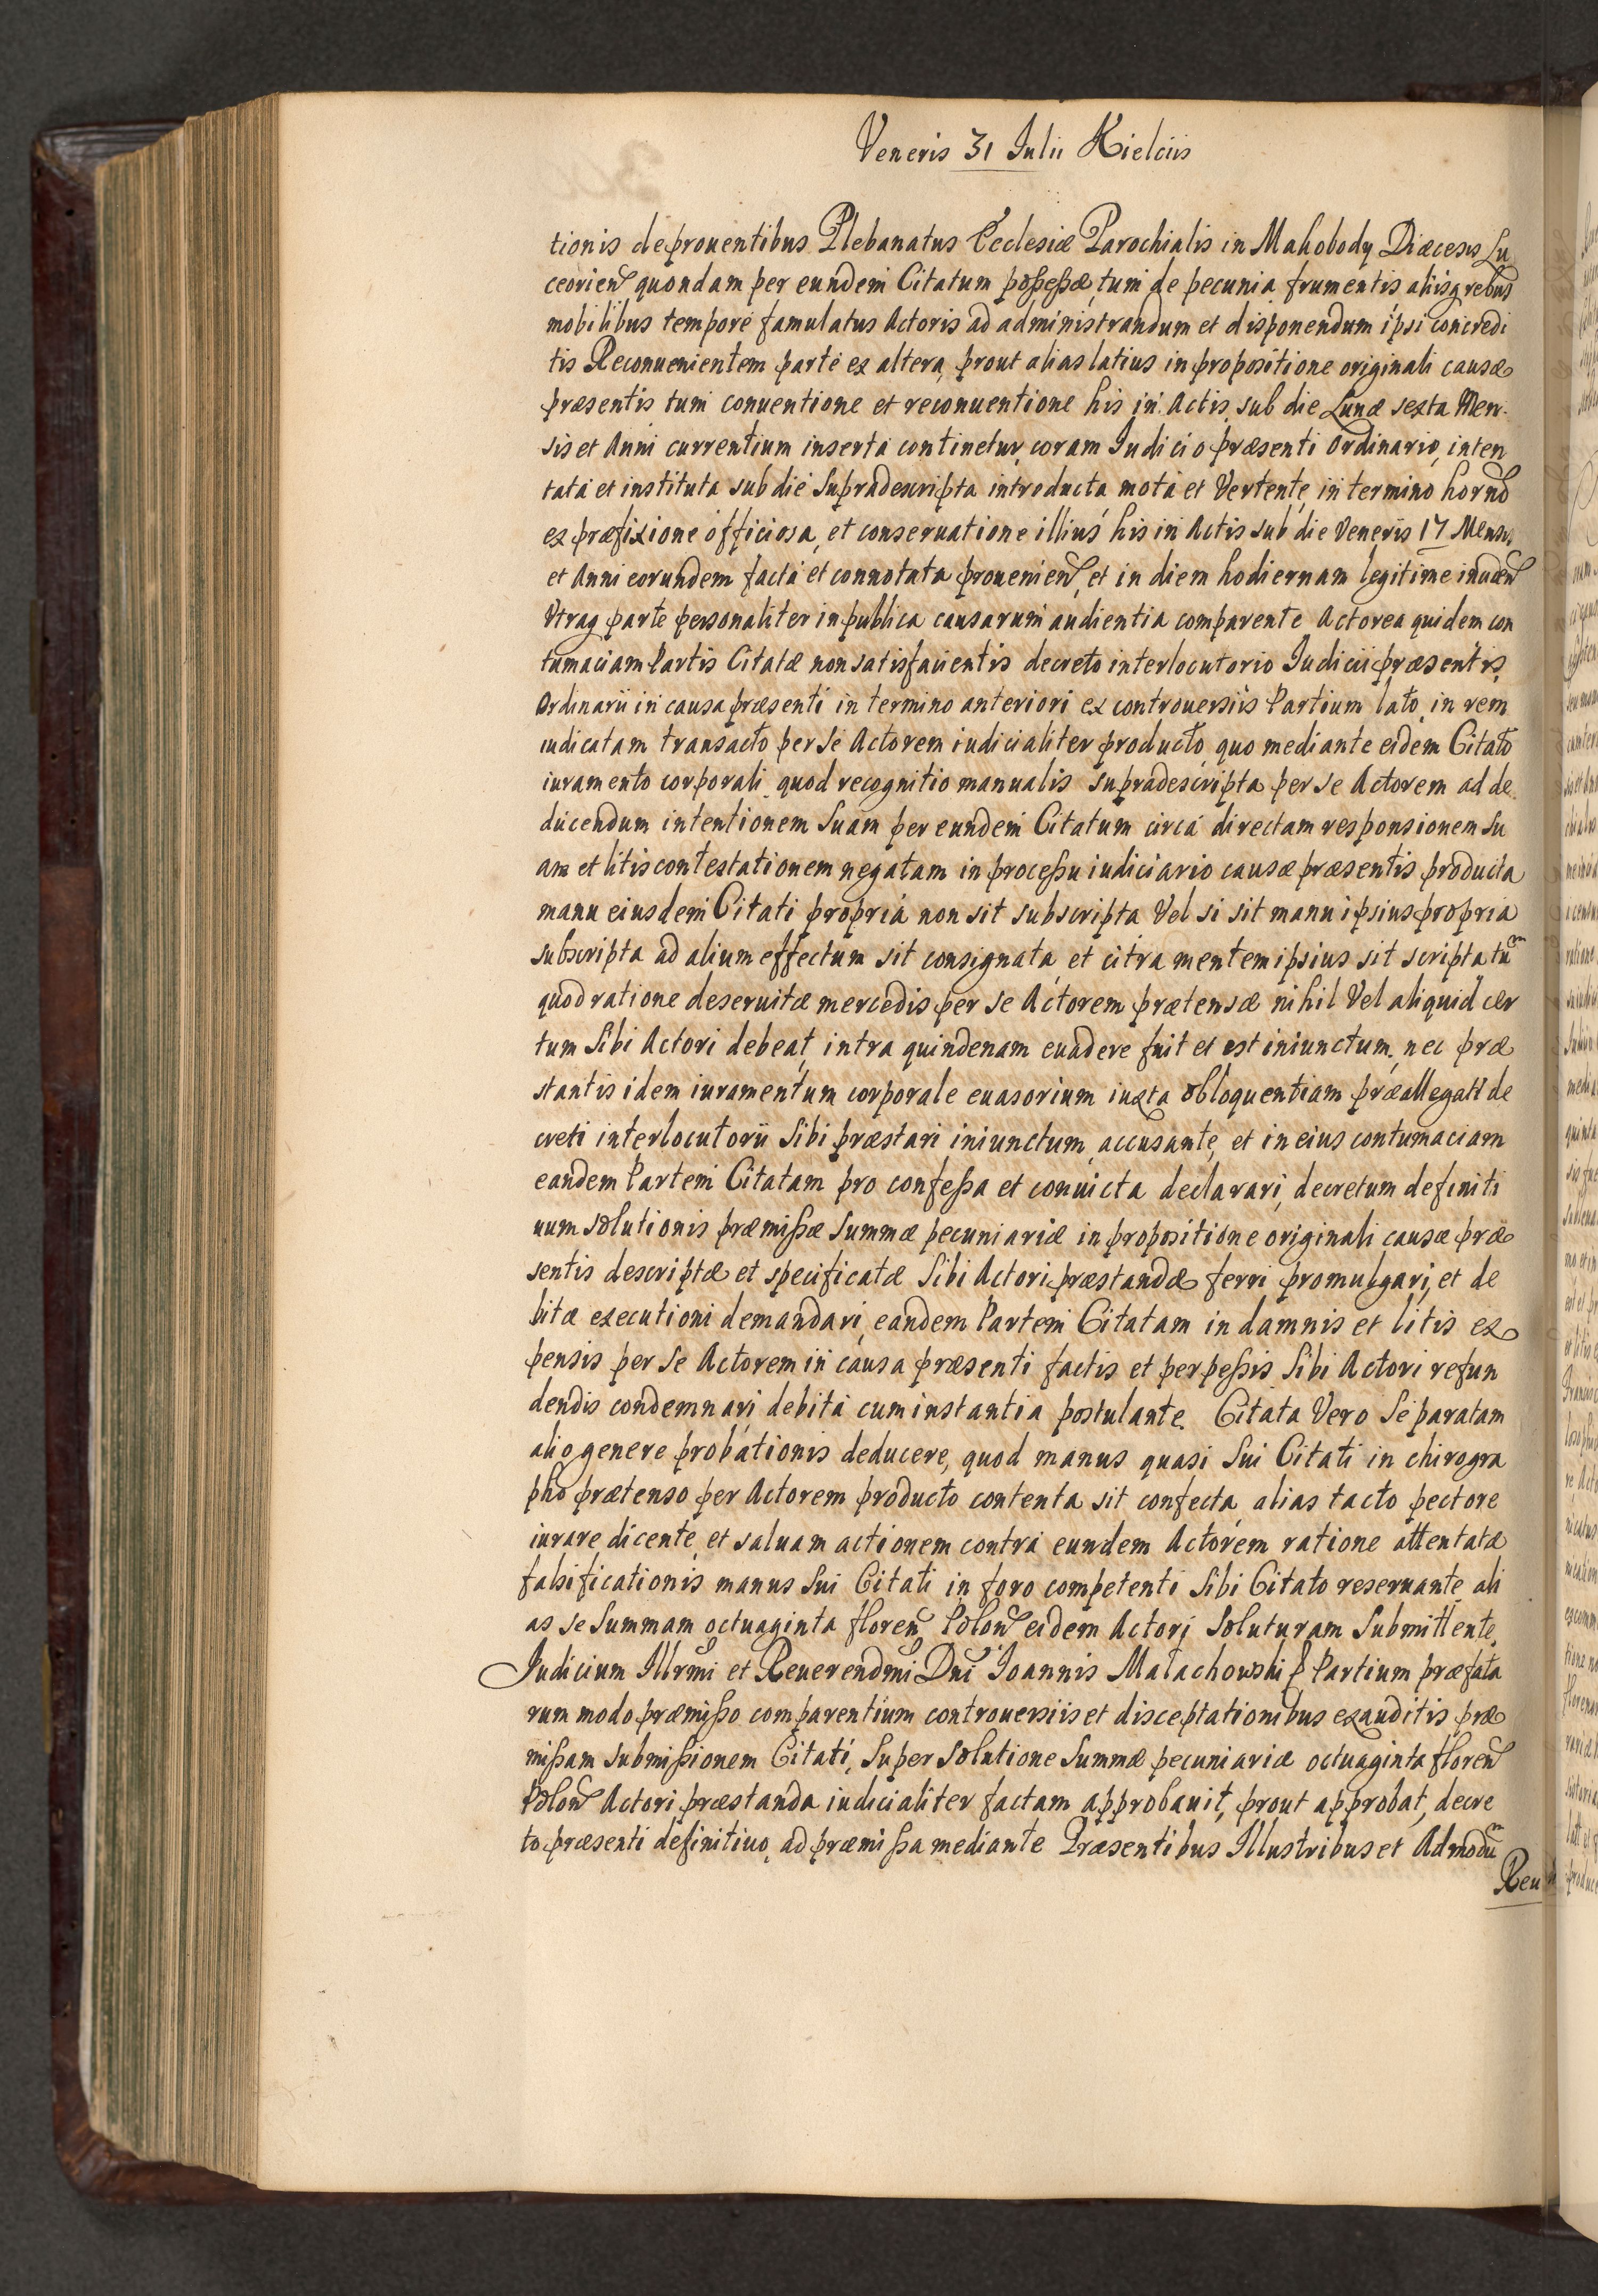 Veneris 31 Iulii Kielciis
tionis de prouentibus Plebanatus Ecclesiæ Parochialis in Mahobody Diæcesis Lu
ceorien quondam per eundem Citatum poßeßæ, tum de pecunia frumentis aliisq rebus
mobilibus tempore famulatus Actoris ad administrandum et disponendum ipsi concredi
tis Reconuenientem parte ex altera, prout alias latius in propositione originali causæ
præsentis tum conuentione et reconuentione his in Actis sub die Lunæ sexta Men
sis et Anni currentium inserta continetur, coram Iudicio præsenti Ordinario, inten
tata et instituta sub die supradescripta introducta mota et Vertente, in termino horno
ex præfixione officiosa, et conseruatione illius his in Actis sub die Veneris 17 Mensis
et Anni eorundem facta et connotata prouenien, et in diem hodiernam legitime inciden
Vtraq parte personaliter in publica causarum audientia comparente Actorea quidem con
tumaciam Partis Citatæ non satisfacientis decreto interlocutorio Iudicii præsentis
Ordinarii in causa præsenti in termino anteriori ex controuersiis Partium lato, in rem
iudicatam transacto per se Actorem iudicialiter producto, quo mediante eidem Citato
iuramento corporali, quod recognitio manualis supradescripta per se Actorem ad de
ducendum intentionem suam per eundem Citatum circa directam responsionem su
am et litis contestationem negatam in proceßu iudiciario causæ præsentis producta
manu eiusdem Citati propria non sit subscripta Vel si sit manu ipsius propria
subscripta ad alium effectum sit consignata, et citra mentem ipsius sit scripta tum
quod ratione deseruitæ mercedis per se Actorem prætensæ nihil Vel aliquid cer
tum sibi Actori debeat, intra quindenam euadere fuit et est iniunctum, nec præ
stantis idem iuramentum corporale euasorium iuxta obloquentiam præallegati de
creti interlocutorii sibi præstari iniunctum, accusante, et in eius contumaciam
eandem Partem Citatam pro confeßa et conuicta declarari, decretum definiti
uum solutionis præmißæ summæ pecuniariæ in propositione originali causæ præ
sentis descriptæ et specificatæ sibi Actori præstandæ ferri promulgari, et de
bitæ executioni demandari, eandem Partem Citatam in damnis et litis ex
pensis per se Actorem in causa præsenti factis et perpeßis sibi Actori refun
dendis condemnari debita cum instantia postulante. Citata Vero se paratam
alio genere probationis deducere, quod manus quasi sui Citati in chirogra
pho prætenso per Actorem producto contenta sit confecta, alias tacto pectore
iurare dicente, et saluam actionem contra eundem Actorem ratione attentatæ
falsificationis manus sui Citati in foro competenti sibi Citato reseruante, ali
as se summam octuaginta floren Polon eidem Actori soluturam submittente.
Iudicium Illrmi et Reuerendmi Dni Ioannis Malachowski P Partium præfata
rum modo præmißo comparentium controuersiis et disceptationibus exauditis præ
mißam submißionem Citati, super solutione summæ pecuniariæ octuaginta floren
Polon Actori præstanda iudicialiter factam approbauit, prout approbat, decre
to præsenti definitiuo, ad præmißa mediante Præsentibus Illustribus et Admodum
Reu